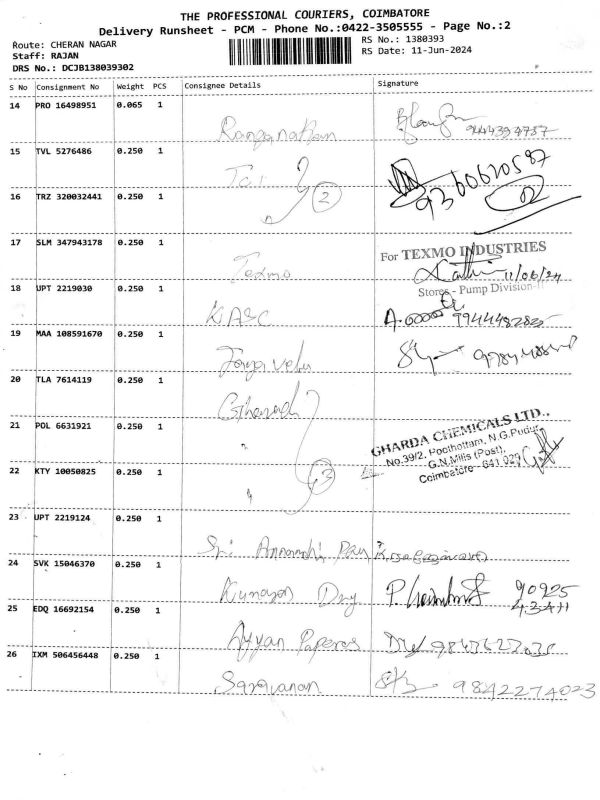 THE PROFESSIONAL COURIERS, COIMBATORE
Delivery Runsheet - PCM - Phone No.:0422-3505555 - Page No.:2
Route: CHERAN NAGAR RS No.: 1380393
Staff: RAJAN RS Date: 11-Jun-2024
DRS No.: DCJB138039302
S No Consignment No Weight PCS Consignee Details Signature
14 PRO 16498951 0.065 1
Ranganathan 9444394787
15 TVL 5276486 0.250 1
9360670587
16 TRZ 320032441 0.250 1
2
17 SLM 347943178 0.250 1
For TEXMO INDUSTRIES
Texmo 11/06/24
Stores - Pump Division-II
18 UPT 2219030 0.250 1
KIASC
19 MAA 108591670 0.250 1
Jayavelu
20 TLA 7614119 0.250 1
Gharda
21 POL 6631921 0.250 1
"
GHARDA CHEMICALS LTD.,
No.39/2, Poothottam, N.G.Pudur,
G.N.Mills (Post),
Coimbatore - 641 029
22 KTY 10050825 0.250 1
" 3
23 UPT 2219124 0.250 1
Sri Annamalai
24 SVK 15046370 0.250 1
Kumaran Dry 90925
43411
25 EDQ 16692154 0.250 1
Ayyan Papers
26 IXM 506456448 0.250 1
Saravanan 9842274023